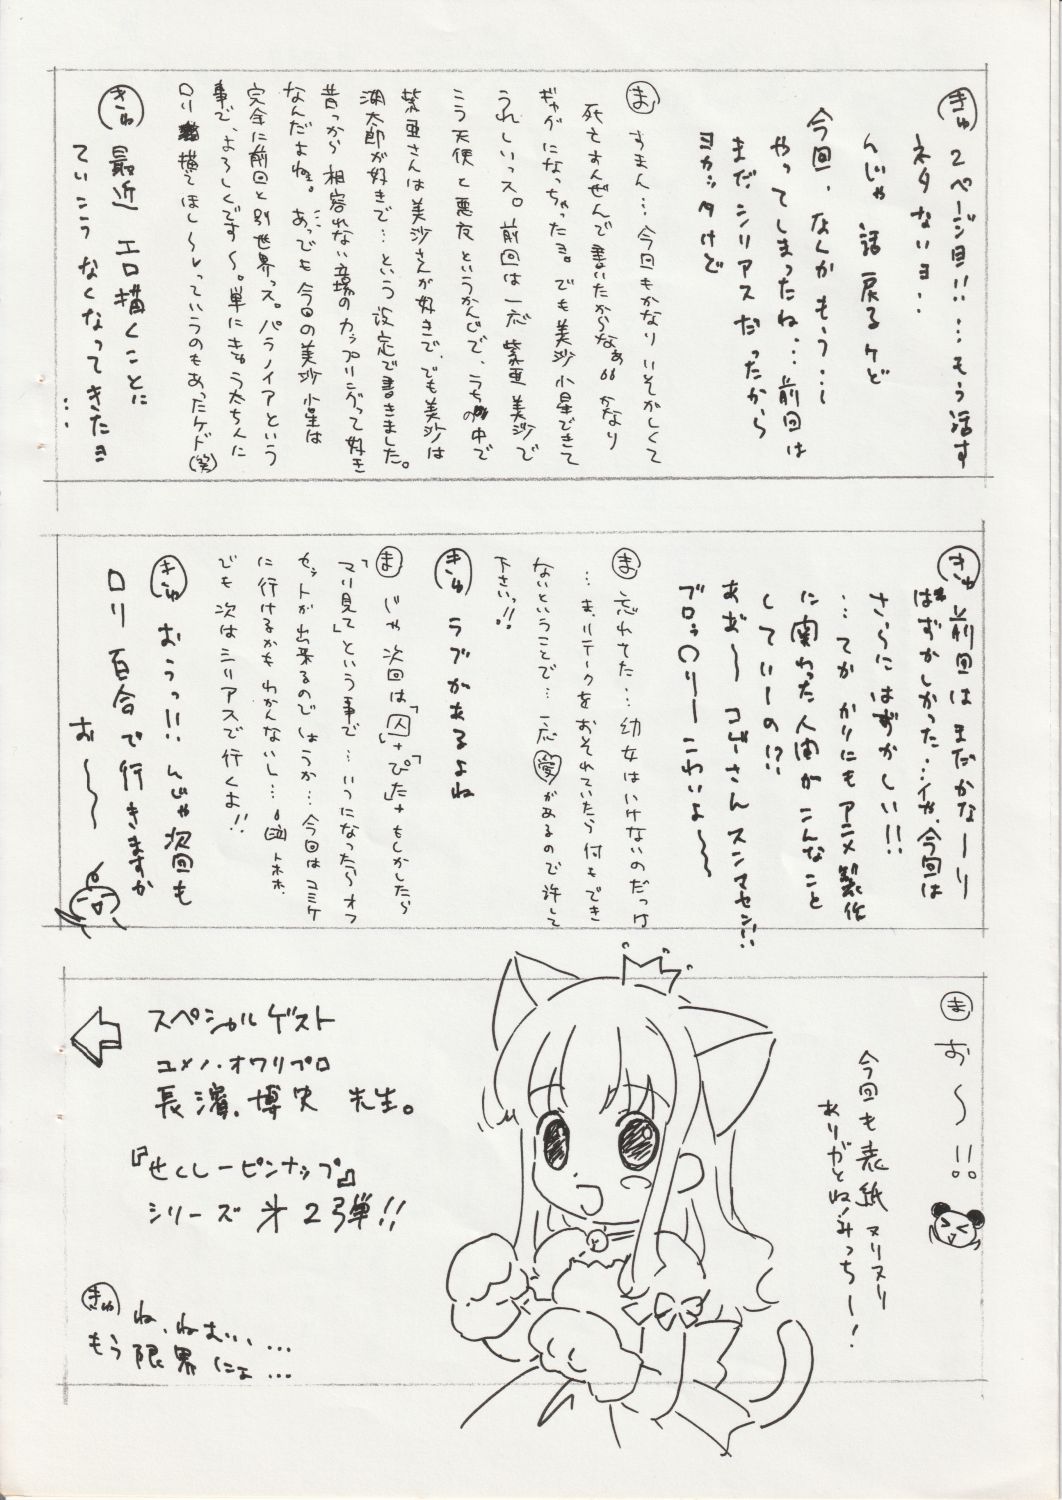 きゅ 2ページ目!!…もう話す
ネタないヨ…
んじゃ 話 戻るケど
今回、なんかもう…
やってしまったね…前回は
まだシリアスだったから
ヨカッタけど
ま すまん… 今回もかなりいそがしくて
死にすんぜんで書いたからなぁ かなり
ギャグになっちゃったヨ。でも美沙小星できて
うれしいっス。前回は一応 紫亜 美沙で
こう天使と悪友というかんじで、うちの中で
紫亜さんは美沙さんが好きで、でも美沙は
湖太郎が好きで…という設定で書きました。
昔っから 相容れない立場のカップリングって好き
なんだよねぇ。あっでも今回の美沙小星は
完全に前回と別世界っス。パラノイアという
事で、よろしくです〜。単にきゅう太ちんに
ロリ描いてほし〜っていうのもあったケド(笑)
きゅ 最近 エロ描くことに
ていこうなくなってきたヨ
…
きゅ 前回はまだかなーり
はずかしかった…イヤ、今回は
さらにはずかしい!!
…てか かりにもアニメ製作
に関わった人間がこんなこと
していーの!?
あぁ〜 コゲさん スンマセン!!
ブロッ〇リー こわいよ〜
ま 忘れてた… 幼女はいけないのだっけ
…ま、リテークをおそれていたら何もでき
ないということで… 一応 愛があるので許して
下さいっ!!
きゅ ラブがあるよね
ま じゃ 次回は「囚」+「ぴた」+もしかしたら
「マリ見て」という事で…いつになったらオフ
セットが出来るのでしょうか…今回はコミケ
に行けるかもわかんないし… 泣 トホホ
でも次はシリアスで行くよ!!
きゅ おうっ!! んじゃ次回も
ロリ 百合で行きますか
お〜
ま お〜!!
今回も表紙 ヌリヌリ
ありがとね!みっちー!
スペシャルゲスト
ユメノ・オワリプロ
長濱 博史 先生。
『せくしーピンナップ』
シリーズ 㐧2弾!!
きゅ ね、ねむい…
もう限界にょ…